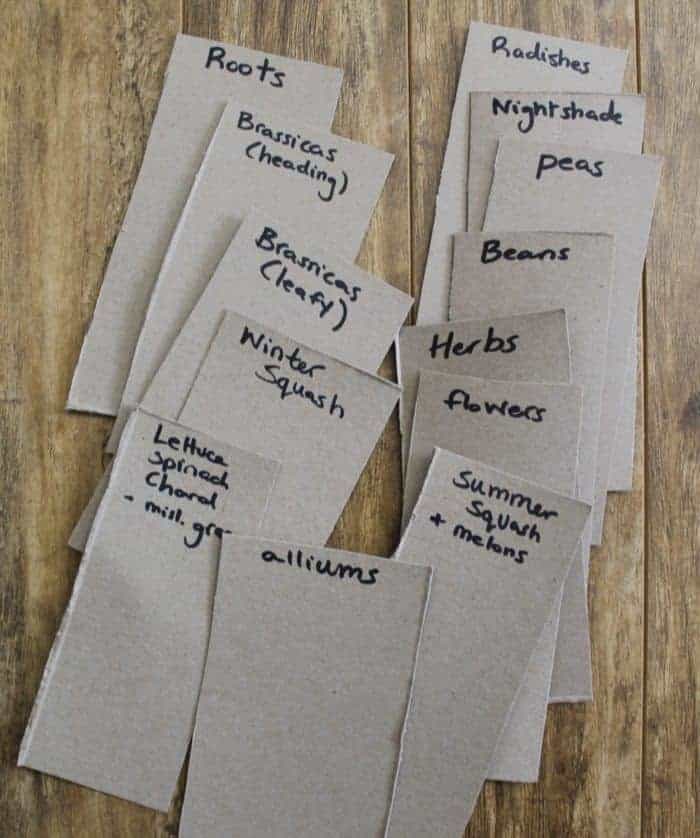 Roots
Brassicas
(heading)
Brassicas
(leafy)
Winter
Squash
Lettuce
Spinach
Chard
- misl.
alliums
Radishes
Nightshade
peas
Beans
Herbs
flowers
Summer
Squash
+ melons